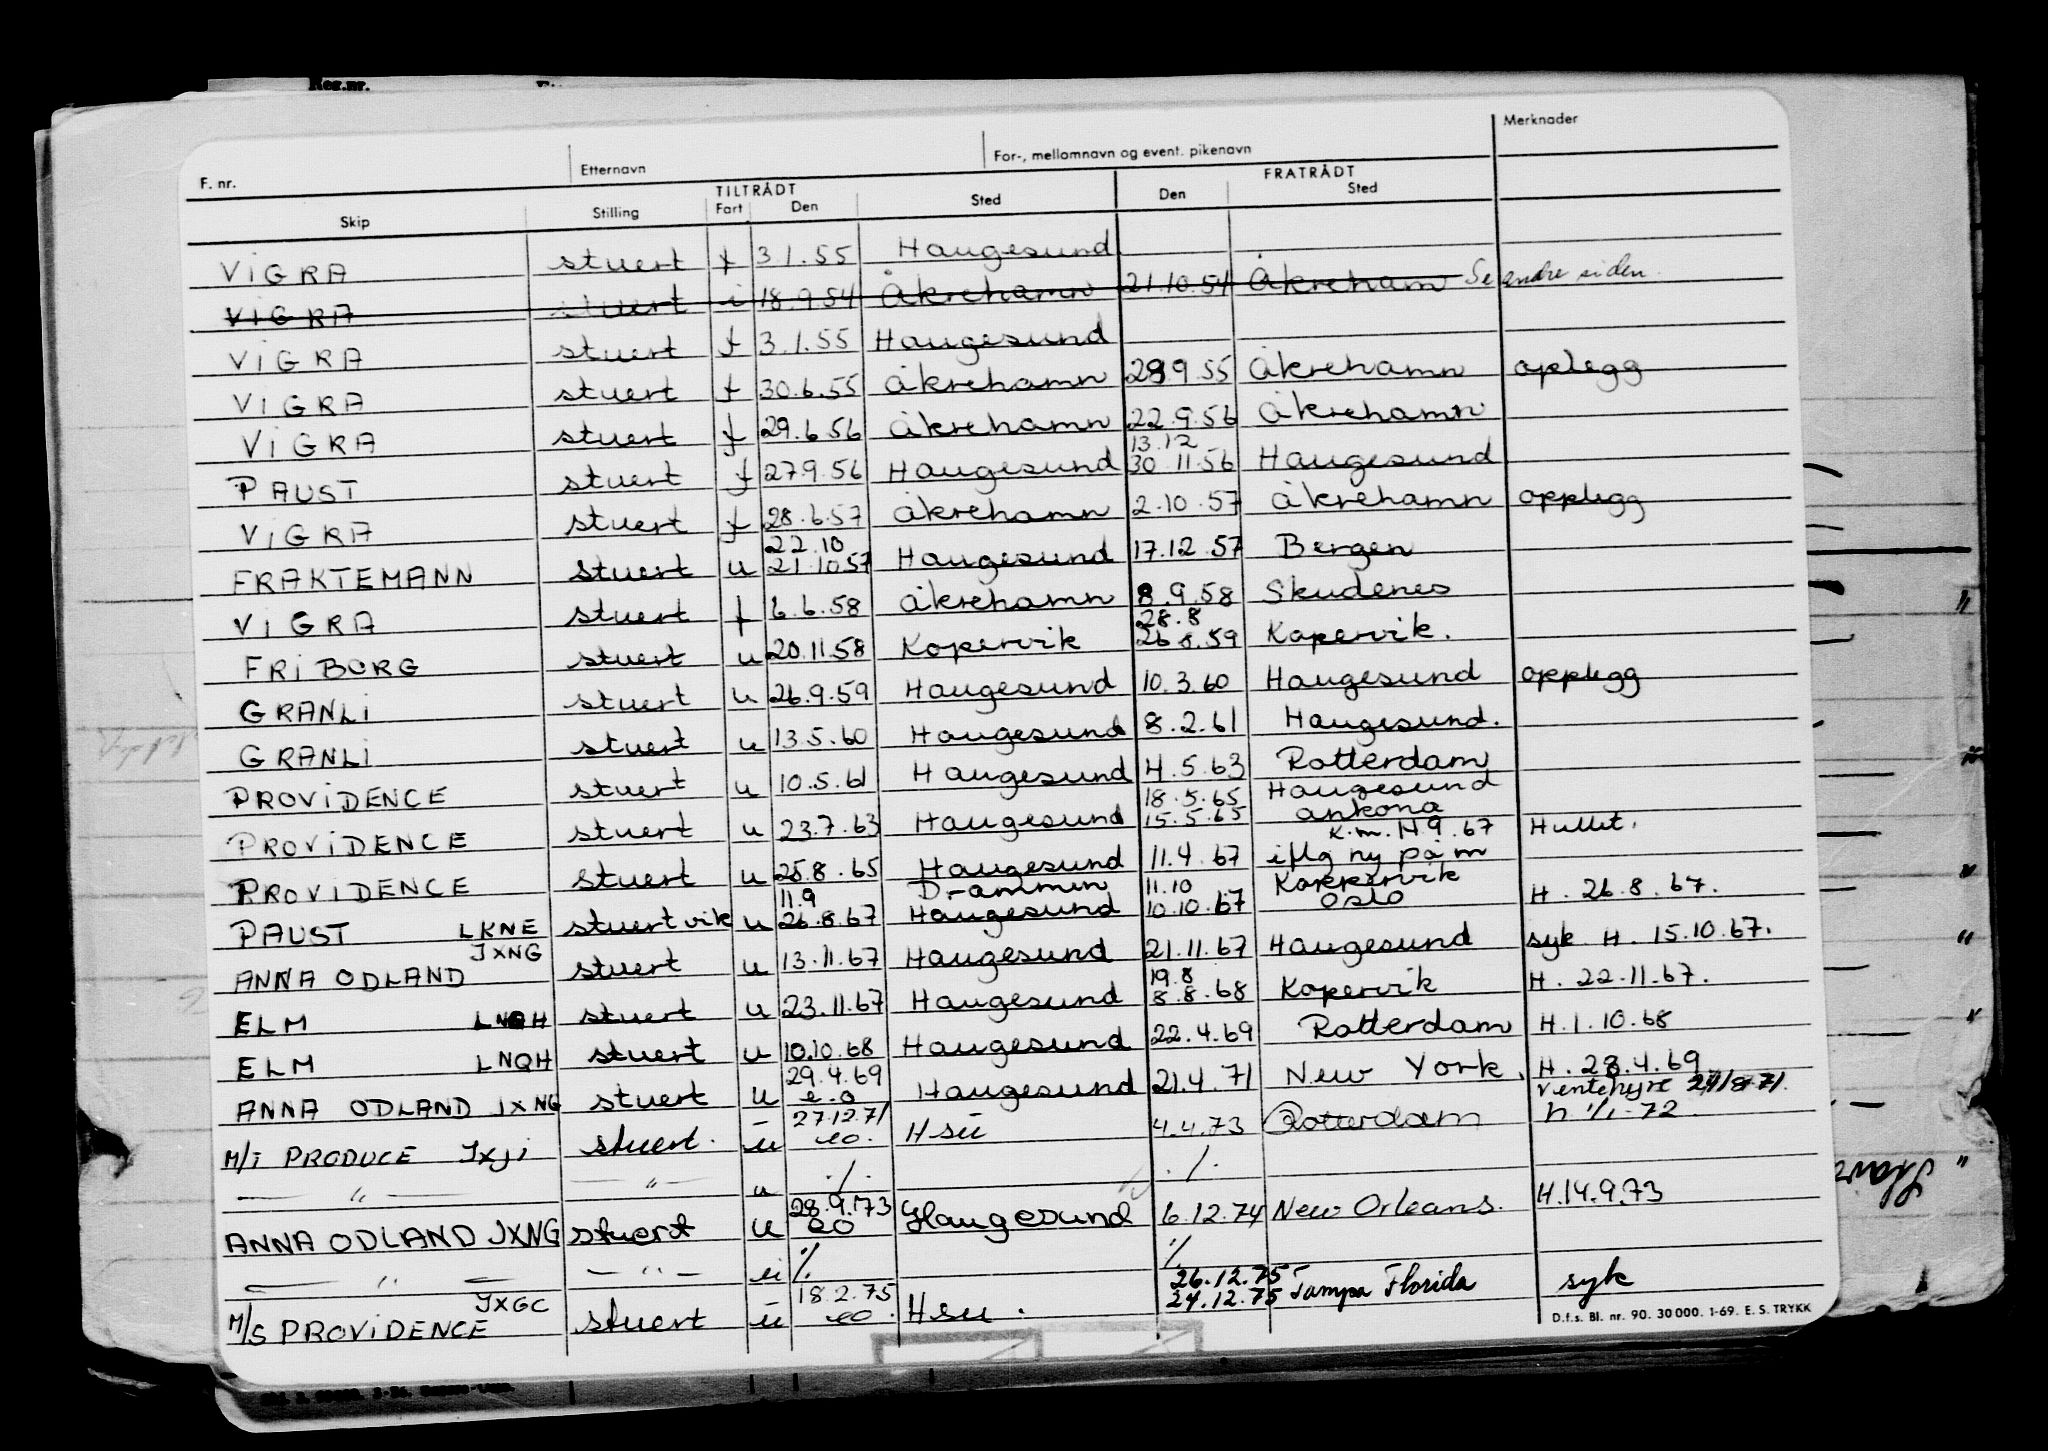 Reg.nr.
F. nr. Etternavn For-, mellomnavn og event. pikenavn Merknader
TILTRÅDT FRATRÅDT
Skip Stilling Fart Den Sted Den Sted
VIGRA stuert f 3.1.55 Haugesund
VIGRA stuert i 18.9.54 Åkrehamn 21.10.54 Åkreham Se andre siden.
VIGRA stuert f 3.1.55 Haugesund
VIGRA stuert f 30.6.55 Åkrehamn 28.9.55 Åkrehamn oplegg
VIGRA stuert f 29.6.56 Åkrehamn 22.9.56 Åkrehamn
13.12
PAUST stuert f 27.9.56 Haugesund 30.11.56 Haugesund
VIGRA stuert f 28.6.57 Åkrehamn 2.10.57 Åkrehamn opplegg
22.10
FRAKTEMANN stuert u 21.10.57 Haugesund 17.12.57 Bergen
VIGRA stuert f 6.6.58 Åkrehamn 8.9.58 Skudenes
28.8
FRIBORG stuert u 20.11.58 Kopervik 26.8.59 Kopervik.
GRANLI stuert u 26.9.59 Haugesund 10.3.60 Haugesund opplegg
GRANLI stuert u 13.5.60 Haugesund 8.2.61 Haugesund.
PROVIDENCE stuert u 10.5.61 Haugesund 4.5.63 Rotterdam
18.5.65 Haugesund
PROVIDENCE stuert u 23.7.63 Haugesund 15.5.65 ankona
K.m. 14.9.67 Hullet.
PROVIDENCE stuert u 25.8.65 Haugesund 11.4.67 iflg ny på m
11.9 Drammen 11.10 Koppervik
PAUST LKNE stuert vik u 26.8.67 Haugesund 10.10.67 Oslo H. 26.8.67.
JXNG
ANNA ODLAND stuert u 13.11.67 Haugesund 21.11.67 Haugesund syk H. 15.10.67.
19.8
ELM LNQH stuert u 23.11.67 Haugesund 8.8.68 Kopervik H. 22.11.67.
ELM LNQH stuert u 10.10.68 Haugesund 22.4.69 Rotterdam H.1.10.68
29.4.69
ANNA ODLAND JXNG stuert u e.o Haugesund 21.4.71 New York. H. 28.4.69
ventehyre 24/8-71.
27.12.71
M/T PRODUCE JXJI stuert. u eo. Hsu 4.4.73 Rotterdam h 1/1-72.
— " — — " — u ./. ./.
28.9.73
ANNA ODLAND JXNG stuert u eo Haugesund 6.12.74 New Orleans. H.14.9.73
— " — — " — u ./. ./.
18.2.75 26.12.75
JXGC
M/S PROVIDENCE stuert u eo. Hsu. 24.12.75 Tampa Florida syk
D.f.s. Bl. nr. 90. 30 000. 1-69. E. S. TRYKK